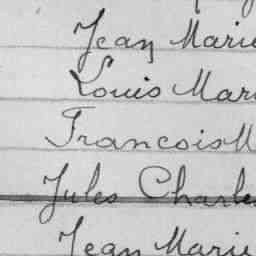 Jean Marie
Louis Mari
Francois M
Jules Charles
Jean Marie